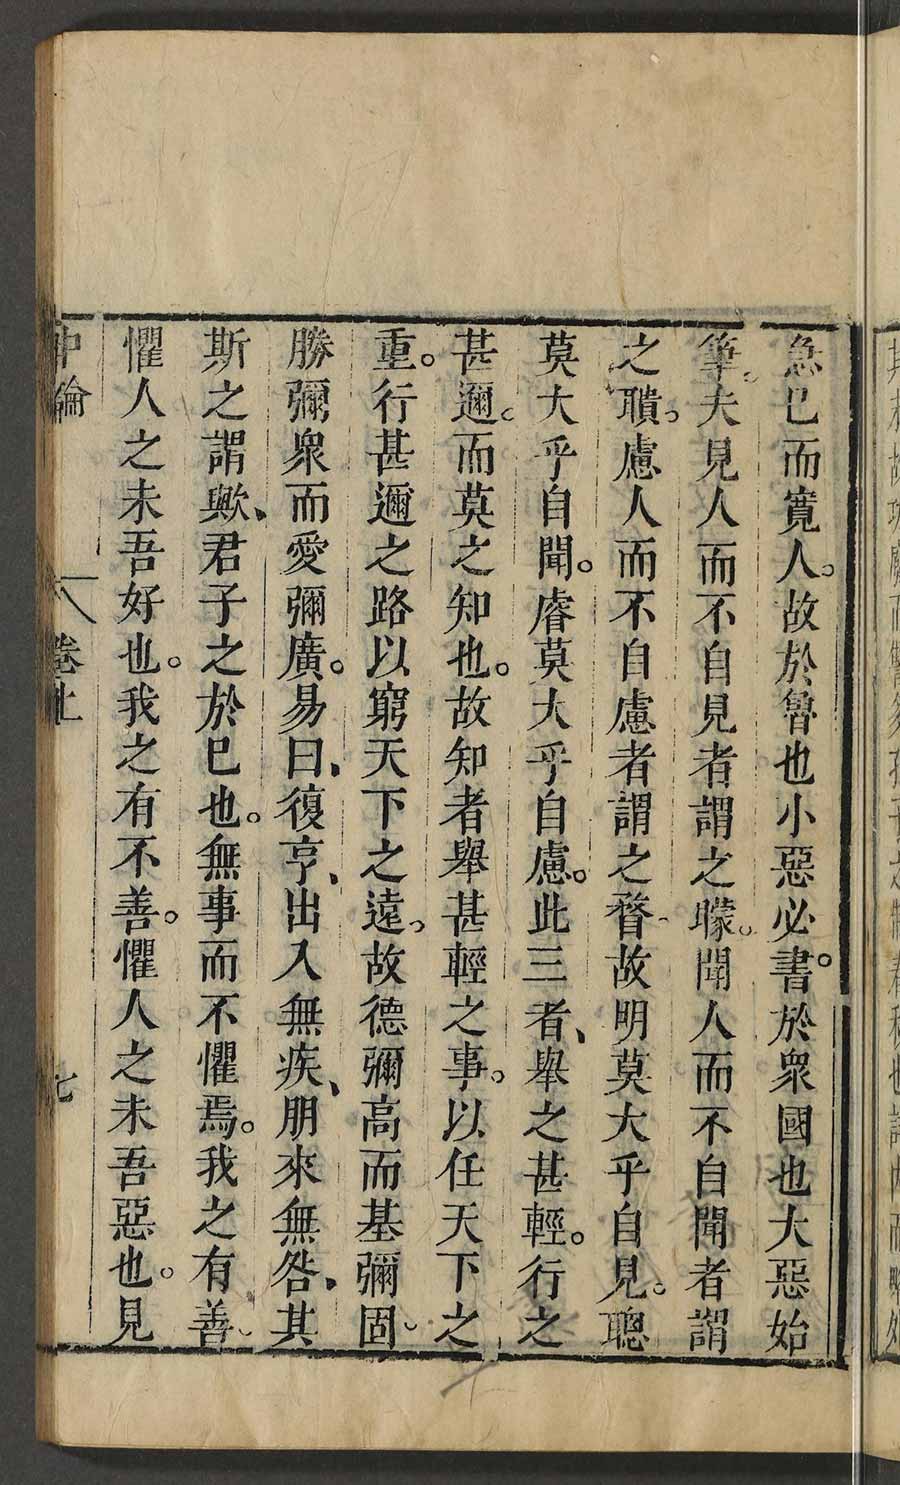 急己而寬人。故於魯也小惡必書。於衆國也大惡始
筆。夫見人而不自見者謂之矇。聞人而不自聞者謂
之聵。慮人而不自慮者謂之瞀。故明莫大乎自見。聰
莫大乎自聞。睿莫大乎自慮。此三者、舉之甚輕。行之
甚邇。而莫之知也。故知者舉甚輕之事。以任天下之
重。行甚邇之路以窮天下之遠。故德彌高而基彌固。
勝彌衆而愛彌廣。易曰、復亨、出入無疾、朋來無咎、其
斯之謂歟、君子之於己也。無事而不懼焉。我之有善。
懼人之未吾好也。我之有不善。懼人之未吾惡也。見
中論 卷上 七